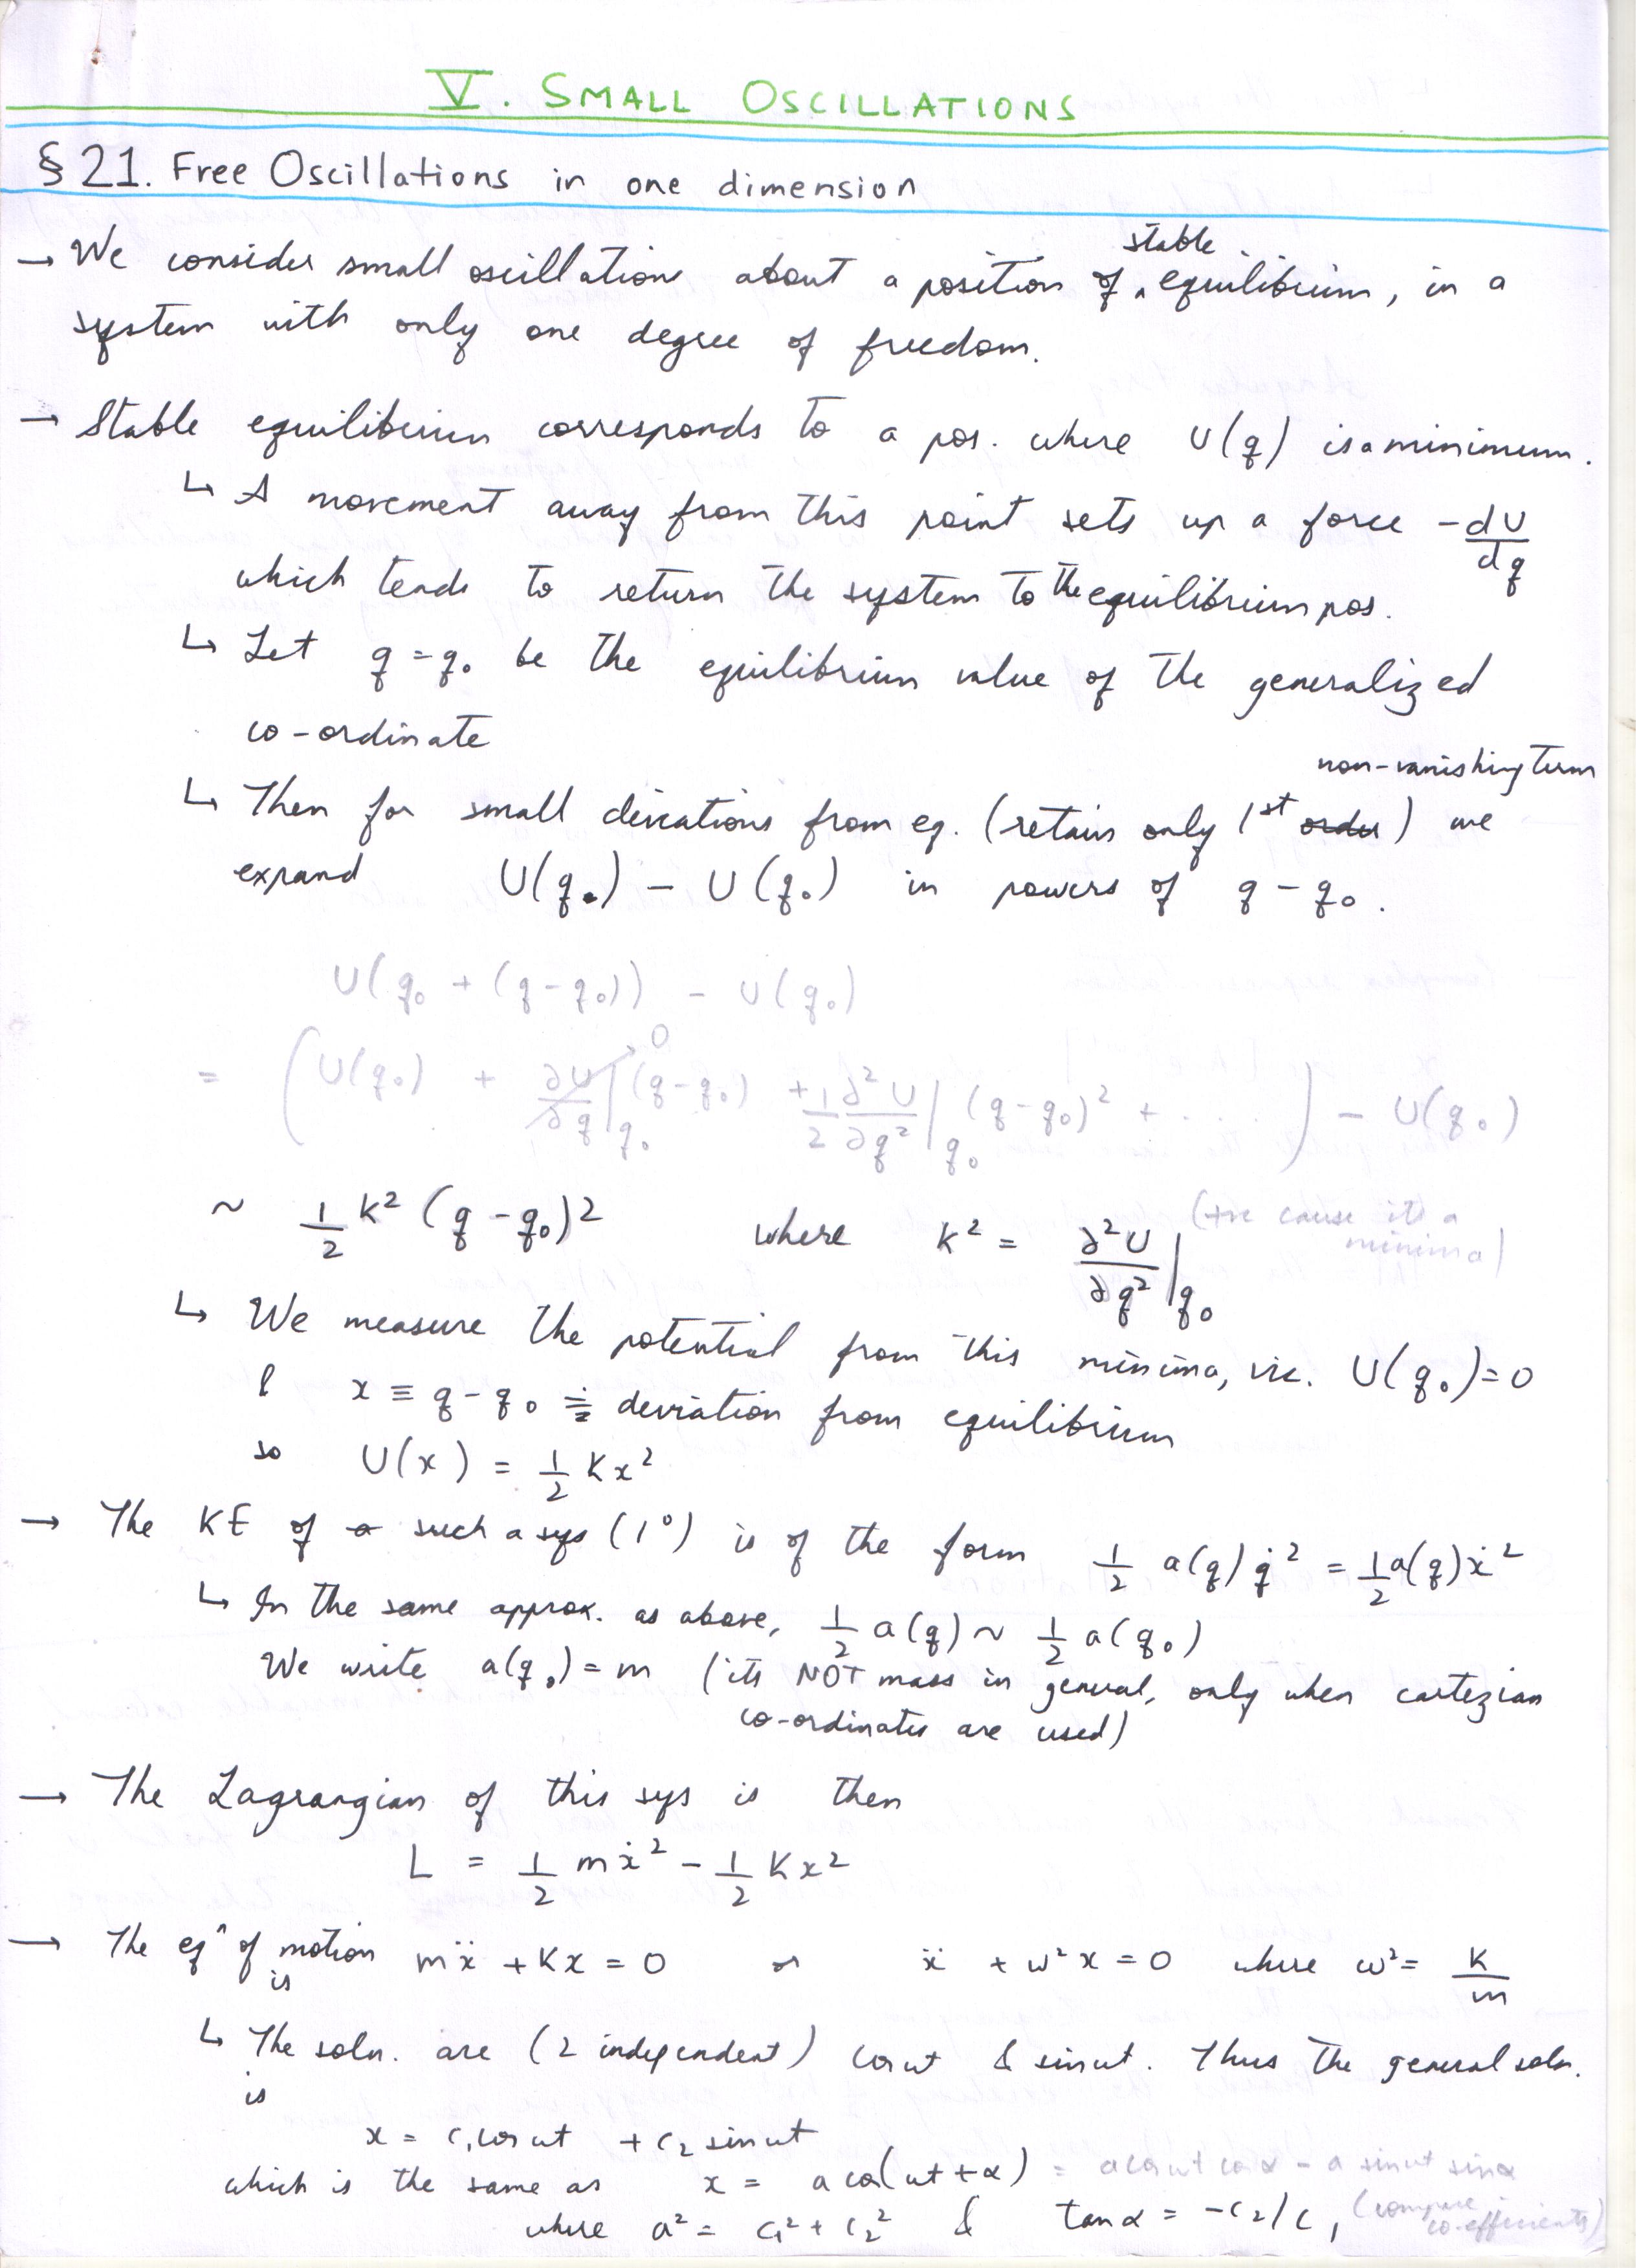 V. SMALL OSCILLATIONS
§ 21. Free Oscillations in one dimension
stable
→ We consider small oscillations about a position of ‸ equilibrium, in a
system with only one degree of freedom.
→ Stable equilibrium corresponds to a pos. where U(q) is a minimum.
↳ A movement away from this point sets up a force -dU/dq
which tends to return the system to the equilibrium pos.
↳ Let q = q₀ be the equilibrium value of the generalized
co-ordinate
non-vanishing term
↳ Then for small deviations from eq. (retain only 1st order) we
expand U(q₀) - U(q₀) in powers of q - q₀.
U(q₀ + (q-q₀)) - U(q₀)
= (U(q₀) + ∂U/∂q|q₀ (q-q₀) → 0 + 1/2 ∂²U/∂q²|q₀ (q-q₀)² + ....) - U(q₀)
~ 1/2 k² (q-q₀)² where k² = ∂²U/∂q²|q₀ (+ve cause its a minima)
↳ We measure the potential from this minima, viz. U(q₀)=0
& x ≡ q-q₀ ≡ deviation from equilibrium
so U(x) = 1/2 Kx²
→ The KE of a such a sys (1°) is of the form 1/2 a(q) q̇² = 1/2 a(q) ẋ²
↳ In the same approx. as above, 1/2 a(q) ~ 1/2 a(q₀)
We write a(q₀) = m (its NOT mass in general, only when cartezian
co-ordinates are used)
→ The Lagrangian of this sys is then
L = 1/2 mẋ² - 1/2 Kx²
→ The eqⁿ of motion is mẍ + Kx = 0 or ẍ + ω²x = 0 where ω² = K/m
↳ The soln. are (2 independent) cos ωt & sin ωt. Thus the general soln.
is
x = c₁ cos ωt + c₂ sin ωt
which is the same as x = a cos(ωt + α) = a cos ωt cos α - a sin ωt sin α
where a² = c₁² + c₂² & tan α = -c₂/c₁ (compare co-efficients)